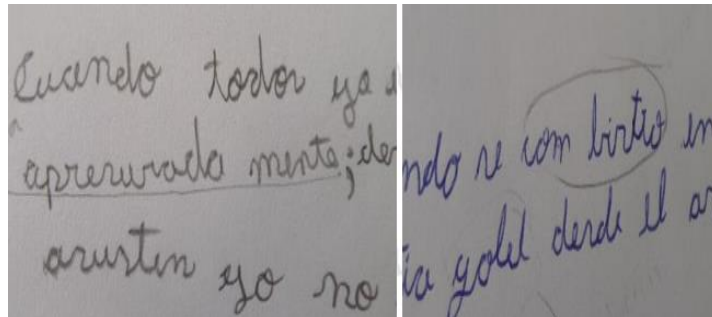 Cuando todos ya
apresurada mente; de
asusten yo no
ndo se com birtio en
yolel desde el a